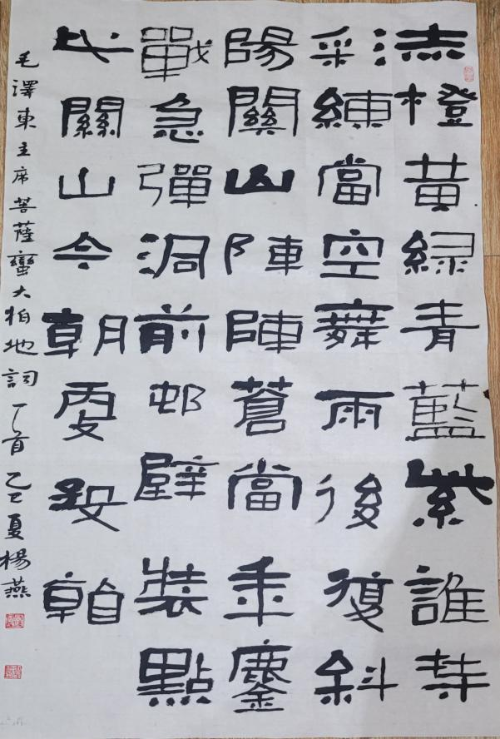 赤橙黄緑青藍紫誰持
彩練當空舞雨後復斜
陽關山陣陣蒼當年鏖
戰急彈洞前邨壁裝點
此關山今朝更好看
毛澤東主席菩薩蠻大柏地詞一首 乙巳夏楊燕